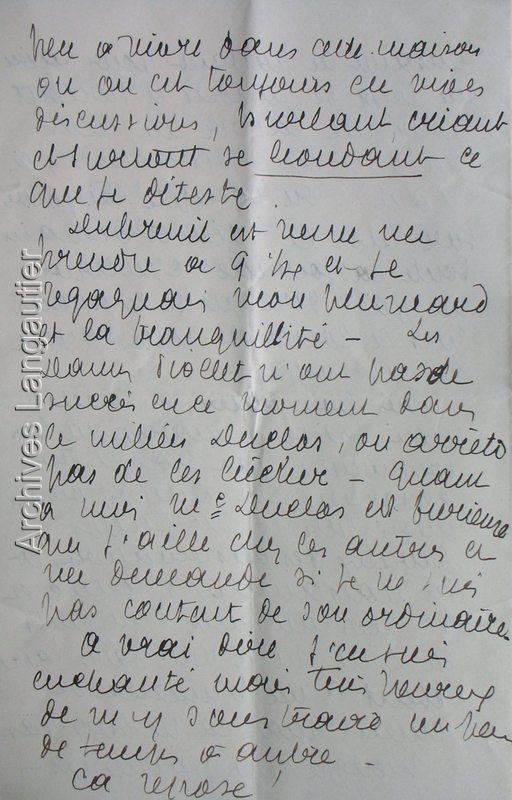 peu a vivre dans cette maison
ou on est toujours en vives
discussions, hurlant criant
et surtout se boudant ce
que je déteste.
Dubreuil est venu me
prendre a 9h ½ et je
regagnais mon plumard
et la tranquillité – Les
Jeanne Viollet n'ont pas de
succès en ce moment dans
le milieu Duclos, on arrete
pas de les bêcher – quant
a moi Me Duclos est furieuse
que j'aille chez les autres et
me demande si je ne suis
pas content de son ordinaire
a vrai dire j'en suis
enchanté mais très heureux
de m'y soustraire un peu
de temps a autre –
Ca repose !
Archives Langautier